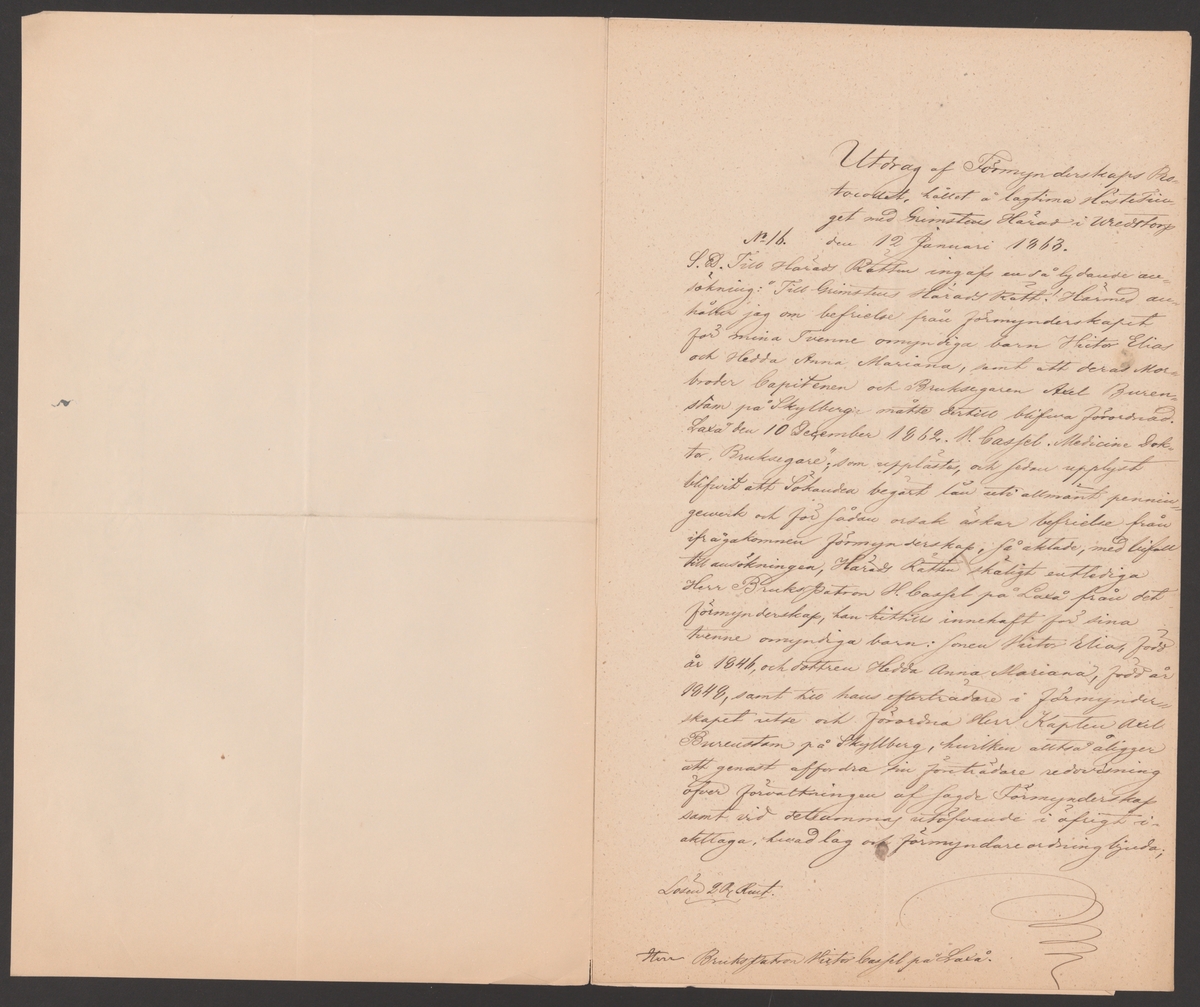 Utdrag af Förmynderskaps Pro-
tocollet, hållet å lagtima Höstetin-
get med Grimstens Härad i Wredstorp
№ 16. den 12 Januari 1863.
S. D. Till Härads Rätten ingafs en så lydande an-
sökning: "Till Grimstens Härads Rätt! Härmed an-
håller jag om befrielse från förmynderskapet
för mina Tvenne omyndiga barn Victor Elias
och Hedda Anna Mariana, samt att deras Mor-
broder Capitenen och Bruksegaren Axel Buren-
stam på Skylberg måtte dertill blifwa förordnad.
Laxå den 10 December 1862. H. Cassel. Medicine Dok-
tor, Bruksegare", som upplästes, och sedan upplyst
blifwit att Sökanden begärt lån uti allmänt pennin-
gewerk och för sådan orsak äskar befrielse från
ifrågakomnen förmynderskap, så aktade, med bifall
till ansökningen, Härads Rätten skäligt entlediga
Herr Bruks Patron H. Cassel på Laxå från det
förmynderskap, han hittills innehaft för sina
tvenne omyndiga barn: sonen Victor Elias, född
år 1846, och dottren Hedda Anna Mariana, född år
1848, samt till hans efterträdare i förmynder-
skapet utse och förordna Herr Kapten Axel
Burenstam på Skyllberg, hwilken alltså åligger
att genast affordra sin företrädare redovisning
öfver förvaltningen af sagde Förmynderskap
samt vid detsammas utöfvande i öfrigt i-
akttaga, hwad lag och förmyndareordning bjuda;
Lösen 2 Rmt.
Herr Bruks Patron Victor Cassel på Laxå.